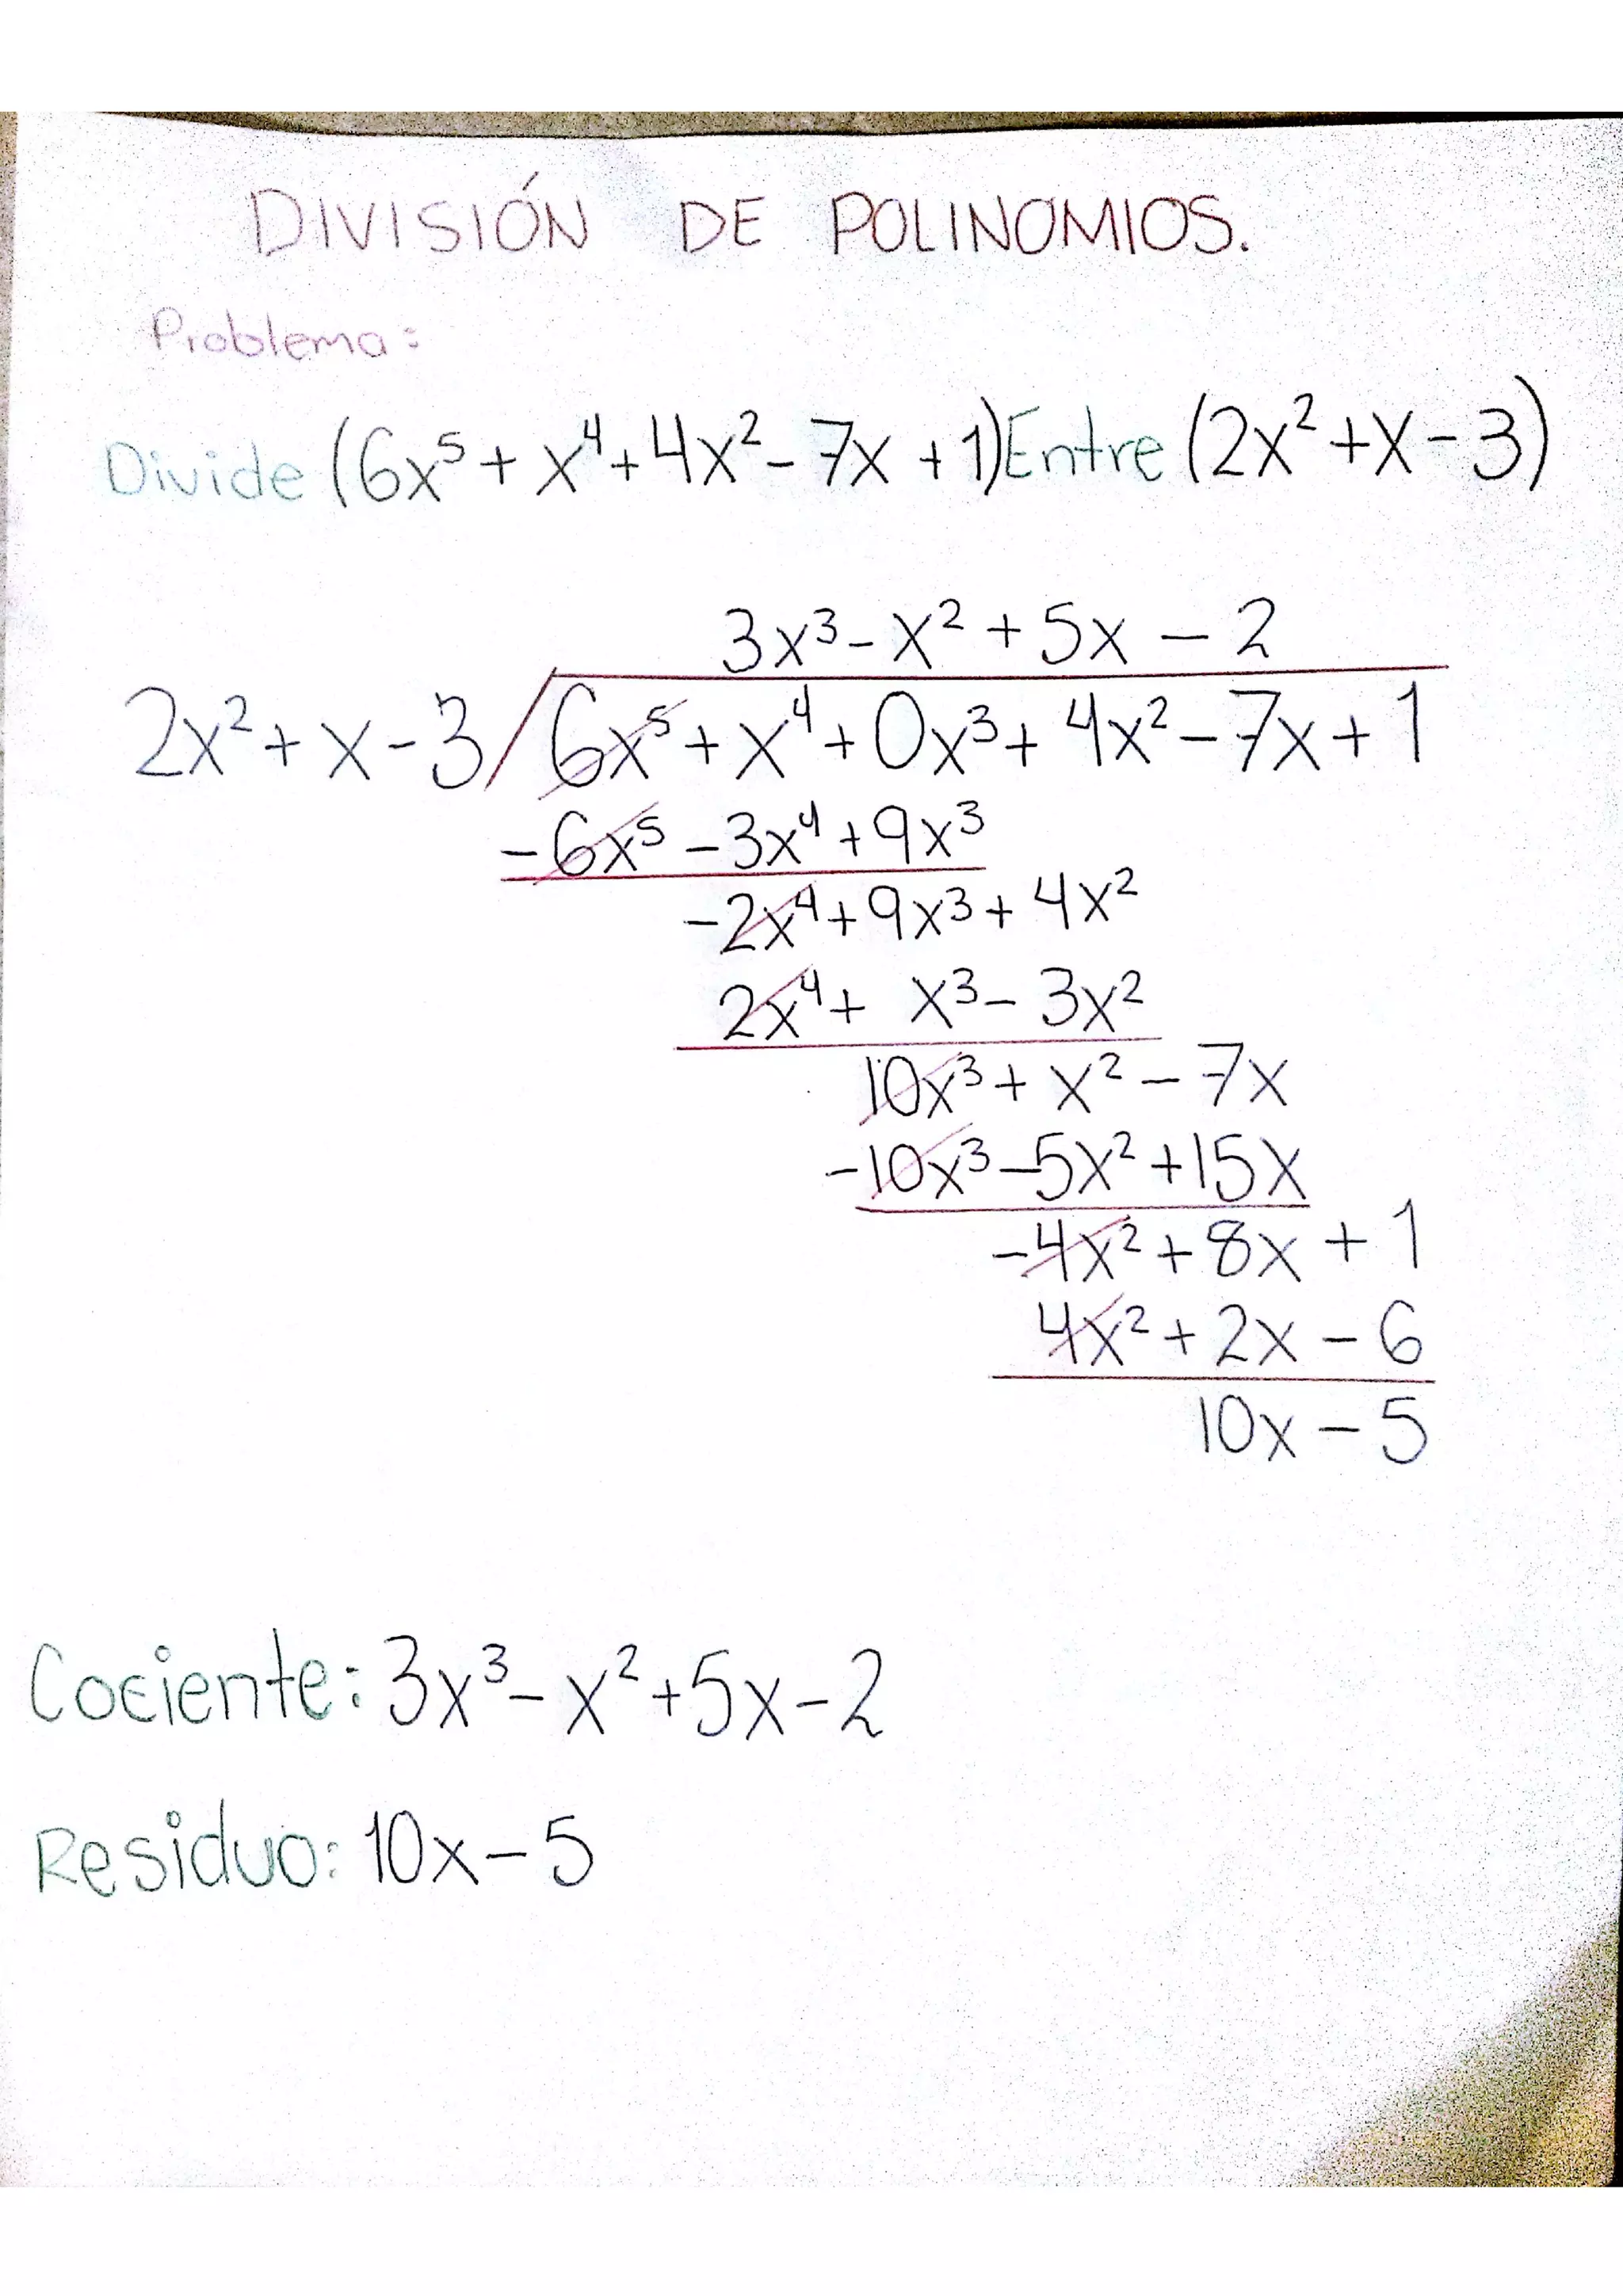 DIVISIÓN DE POLINOMIOS.
Problema:
Divide (6x⁵ + x⁴ + 4x² - 7x + 1) Entre (2x² + x - 3)
3x³ - x² + 5x - 2
2x² + x - 3 / 6x⁵ + x⁴ + 0x³ + 4x² - 7x + 1
-6x⁵ - 3x⁴ + 9x³
-2x⁴ + 9x³ + 4x²
2x⁴ + x³ - 3x²
10x³ + x² - 7x
-10x³ - 5x² + 15x
-4x² + 8x + 1
4x² + 2x - 6
10x - 5
Cociente: 3x³ - x² + 5x - 2
Residuo: 10x - 5